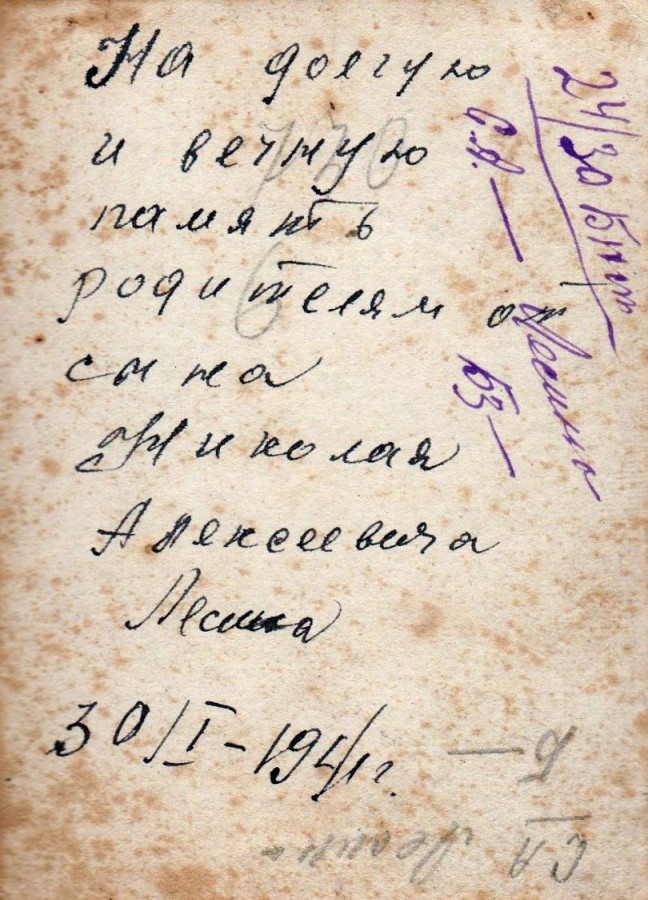 На долгую
и вечную
память
родителям от
сына
Николая
Алексеевича
Лесина
30/I-1941г.
24/30
С.Л. —
Лесину
Б3 —
770
6
Б —
СЛ